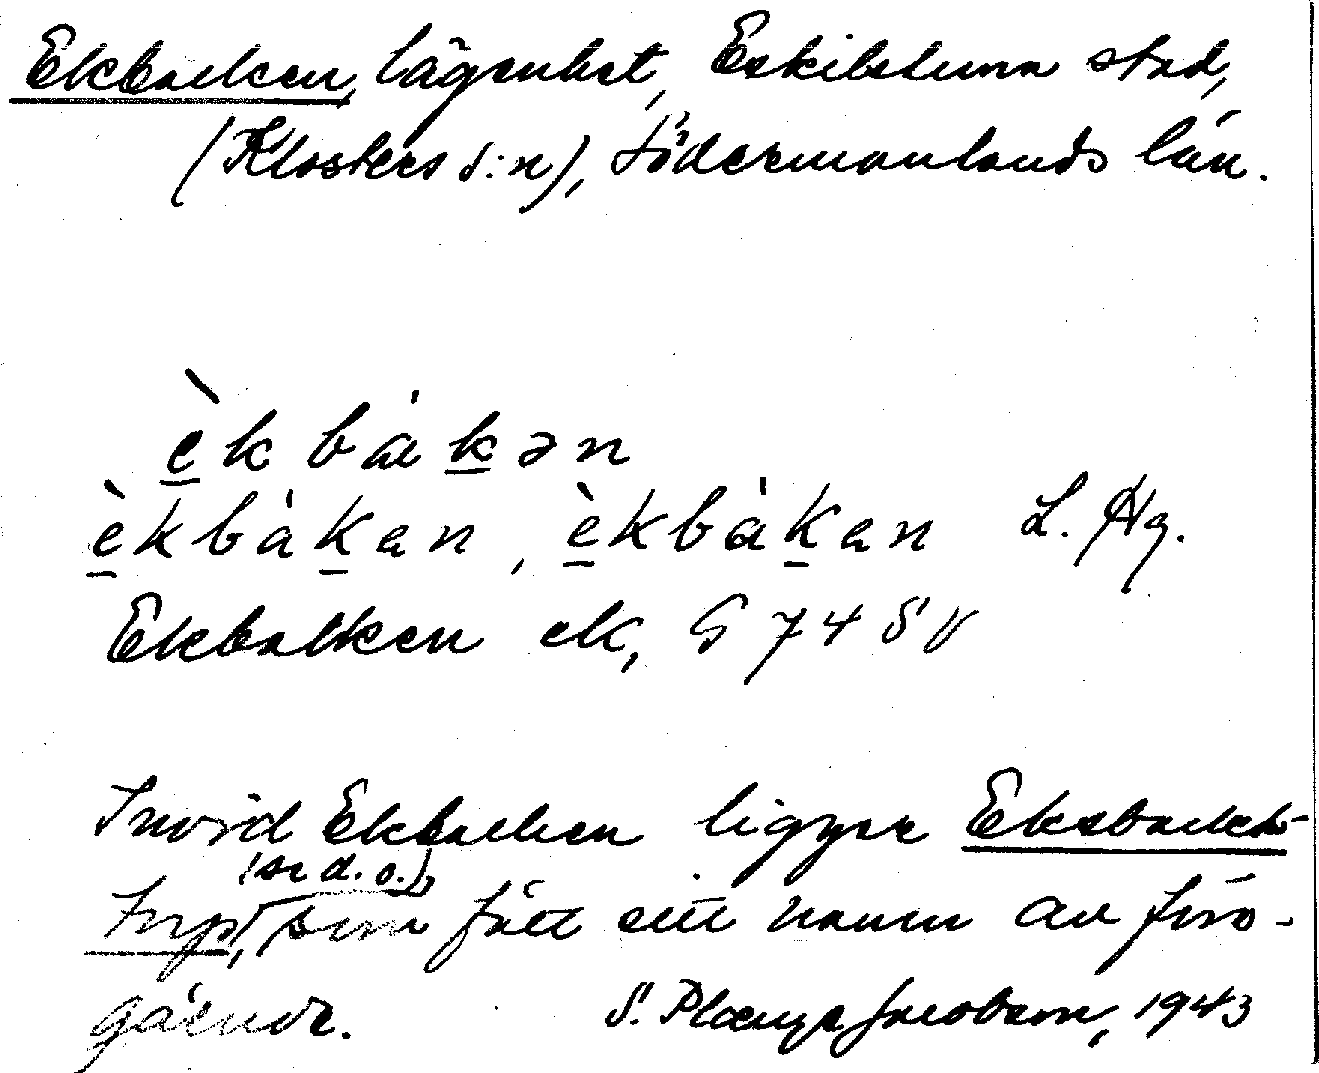 Ekbacken, lägenhet, Eskilstuna stad,
(Klosters s:n), Södermanlands län.
è̱k bàḵən
è̱kbàḵan, è̱kbàḵan L. Hg.
Ekbacken ek, G 74 SV
Invid Ekbacken ligger Eksbacks-
(se d. o.),
torp, som fått sitt namn av före-
gående. S. Plænge Jacobson, 1943